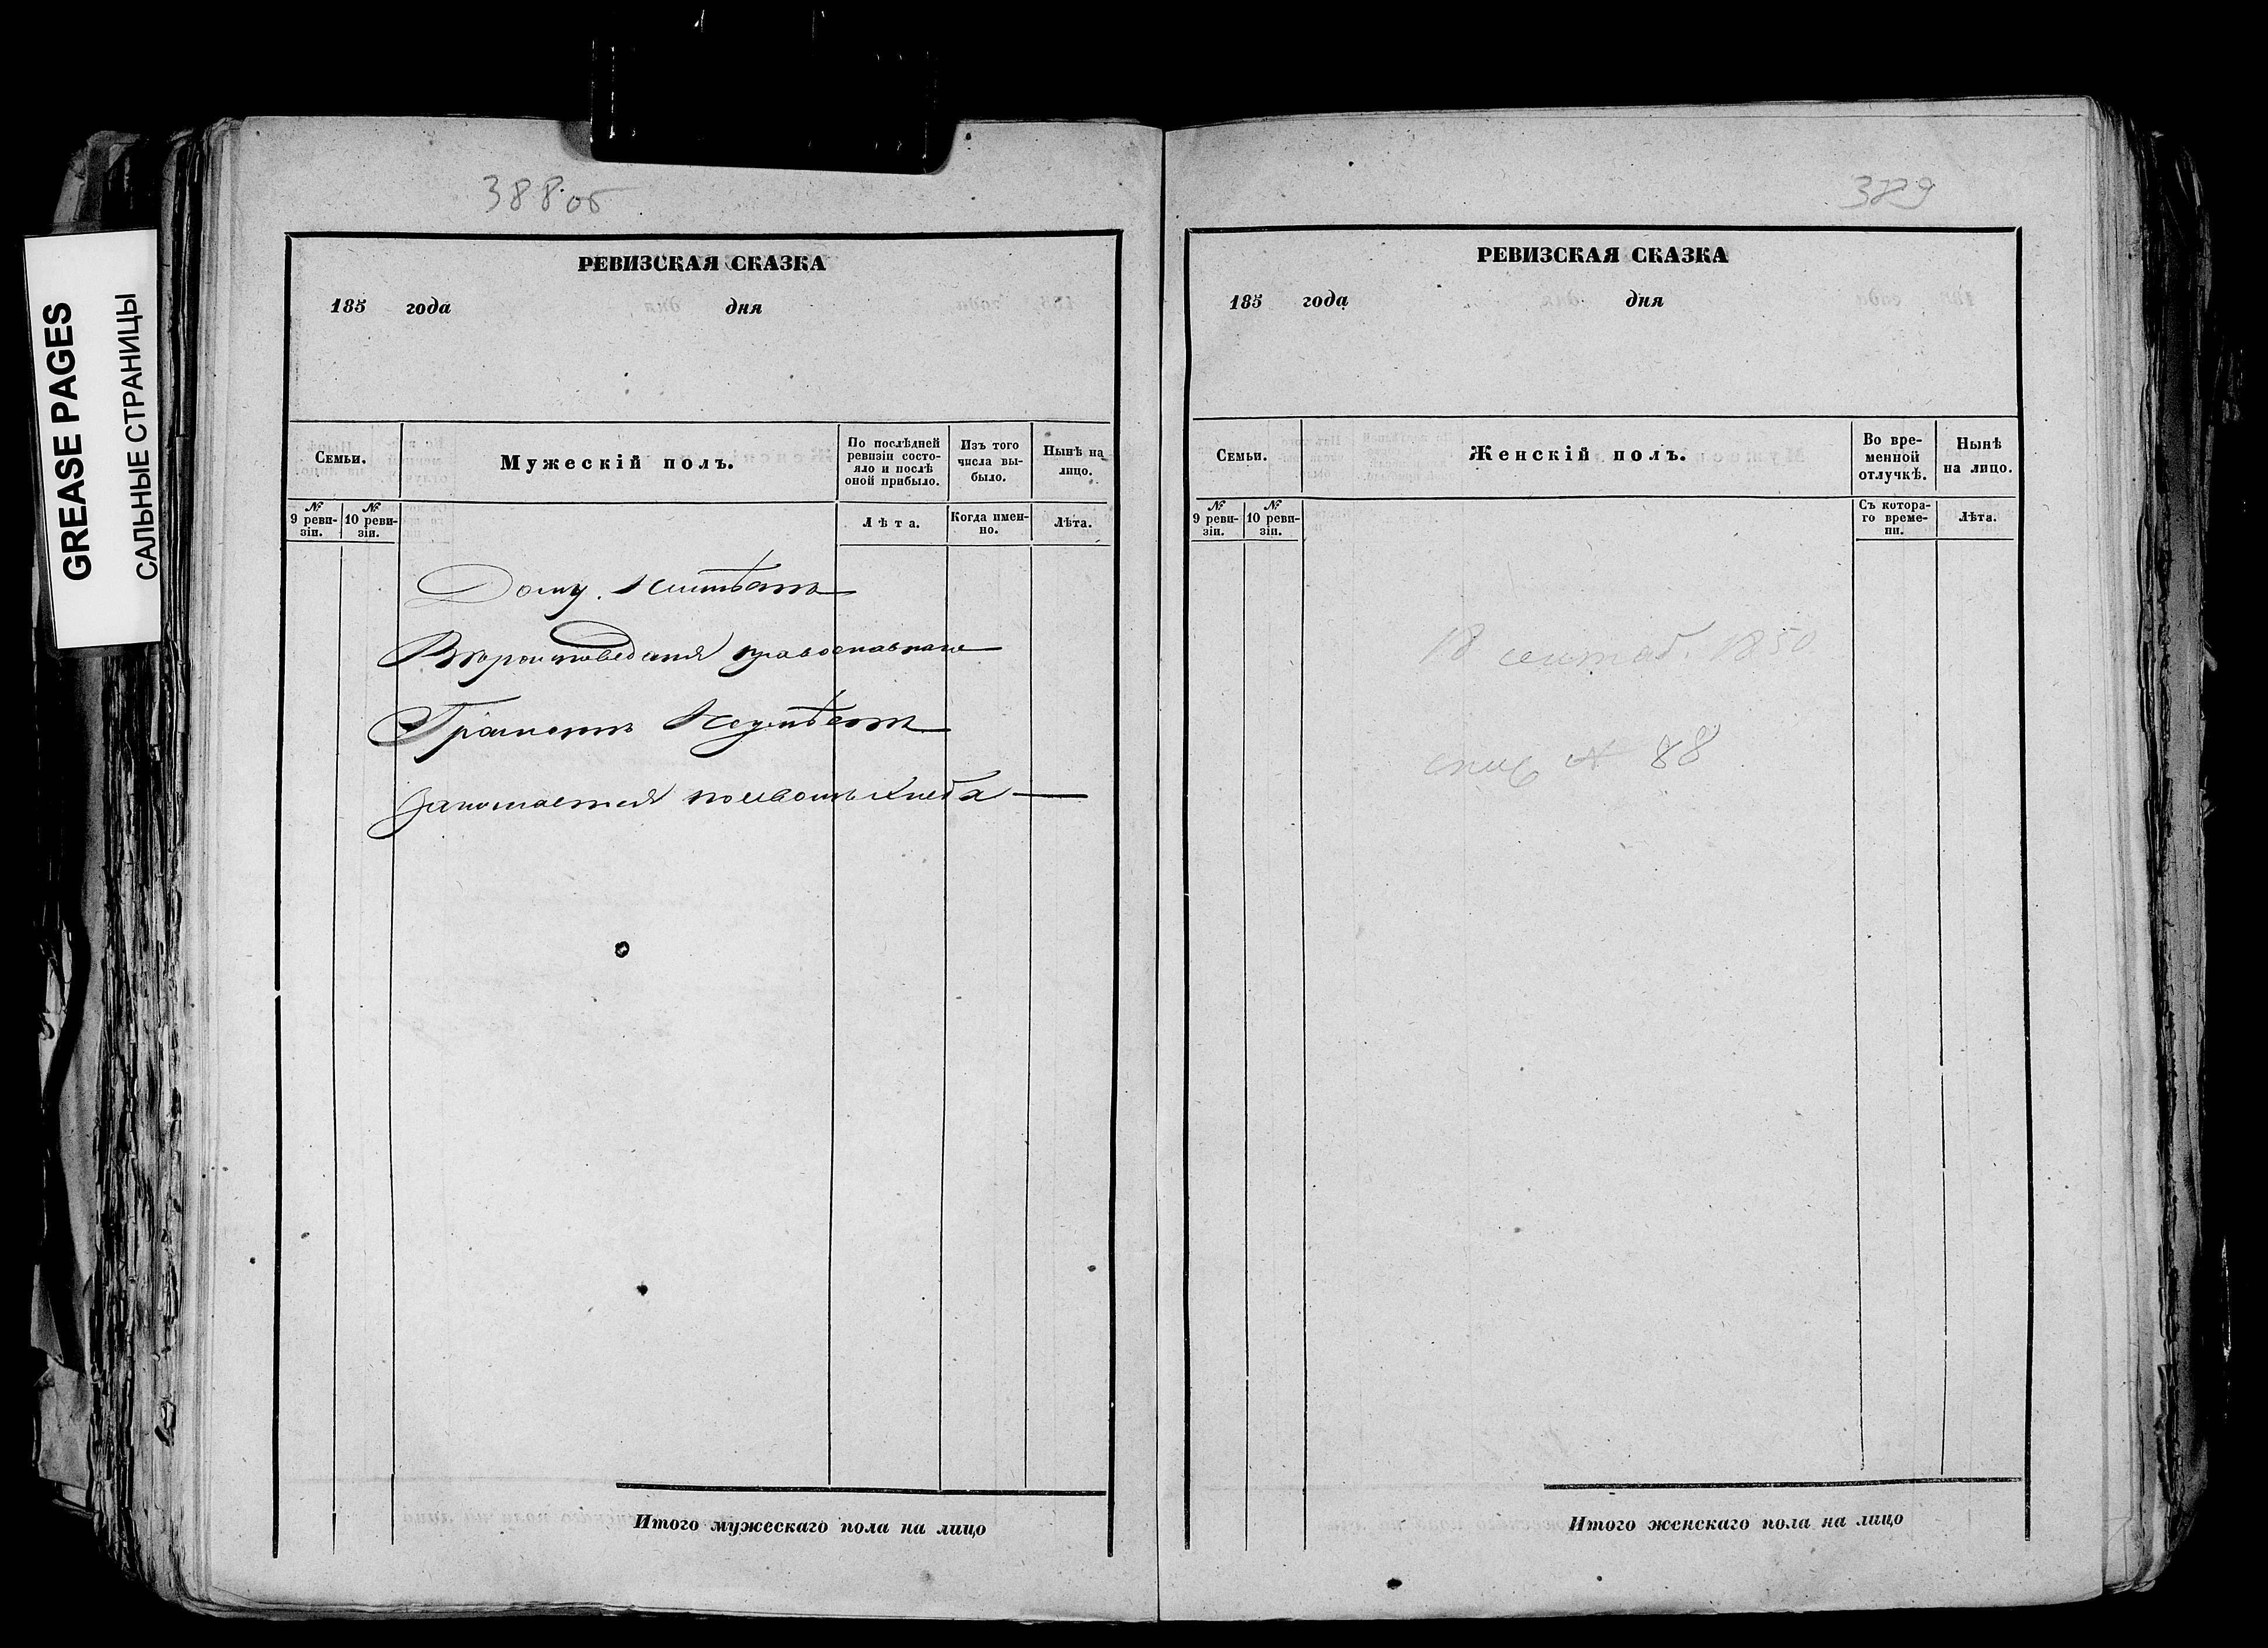 GREASE PAGES
САЛЬНЫЕ СТРАНИЦЫ
388об
РЕВИЗСКАЯ СКАЗКА
185 года дня
Семьи.
Мужескій полъ.
По послѣдней ревизіи состо-
яло и послѣ
оной прибыло.
Изъ того
числа вы-
было.
Нынѣ на
лицо.
№
9 реви-
зіи.
№
10 реви-
зіи.
Лѣта.
Когда имен-
но.
Лѣта.
Дому
православнаго
Грамотѣ Неумѣетъ
занимается посевомъ хлеба
Итого мужескаго пола на лицо
389
РЕВИЗСКАЯ СКАЗКА
185 года дня
Семьи.
Женскій полъ.
Во вре-
менной
отлучкѣ.
Нынѣ
на лицо.
№
9 реви-
зіи.
№
10 реви-
зіи.
Съ котора-
го време-
ни.
Лѣта.
18 сентяб. 1850
№ 88
Итого женскаго пола на лицо